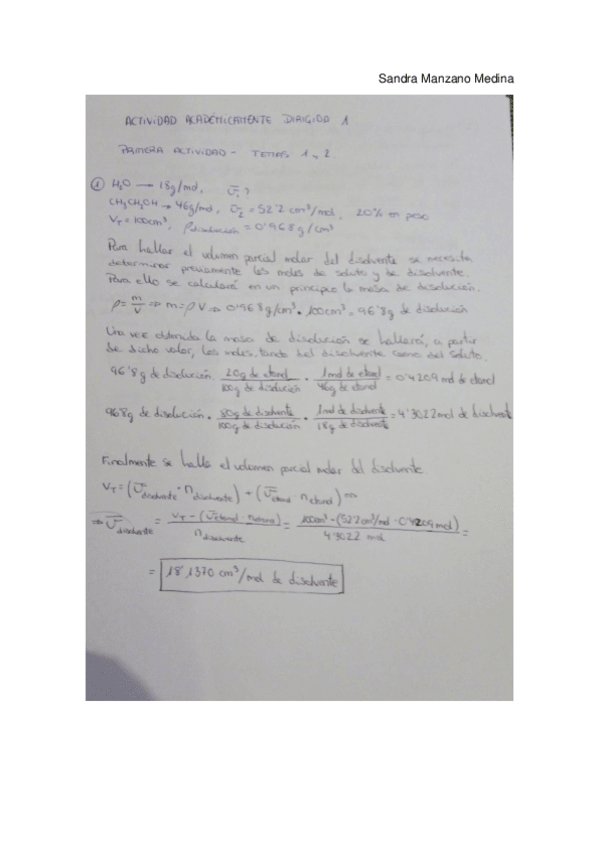 Sandra Manzano Medina
ACTIVIDAD ACADÉMICAMENTE DIRIGIDA 1
PRIMERA ACTIVIDAD - TEMAS 1 y 2.
① H₂O → 18g/mol, v̄₁ ?
CH₃CH₂OH → 46g/mol, v̄₂ = 52'2 cm³/mol, 20% en peso
V_T = 100cm³, ρdisolución = 0'968 g/cm³
Para hallar el volumen parcial molar del disolvente se necesita
determinar previamente los moles de soluto y de disolvente.
Para ello se calculará en un principio la masa de disolución.
ρ = m/V ⇒ m = ρ·V ⇒ 0'968 g/cm³ · 100cm³ = 96'8g de disolución
Una vez obtenida la masa de disolución se hallará, a partir
de dicho valor, los moles, tanto del disolvente como del soluto.
96'8g de disolución · 20g de etanol/100g de disolución · 1 mol de etanol/46g de etanol = 0'4209 mol de etanol
96'8g de disolución · 80g de disolvente/100g de disolución · 1 mol de disolvente/18g de disolvente = 4'3022 mol de disolvente
Finalmente se halla el volumen parcial molar del disolvente
V_T = (v̄disolvente · ndisolvente) + (v̄etanol · netanol) ⇒
⇒ v̄disolvente = V_T - (v̄etanol · netanol)/ndisolvente = 100cm³ - (52'2 cm³/mol · 0'4209 mol)/4'3022 mol =
= 18'1370 cm³/mol de disolvente